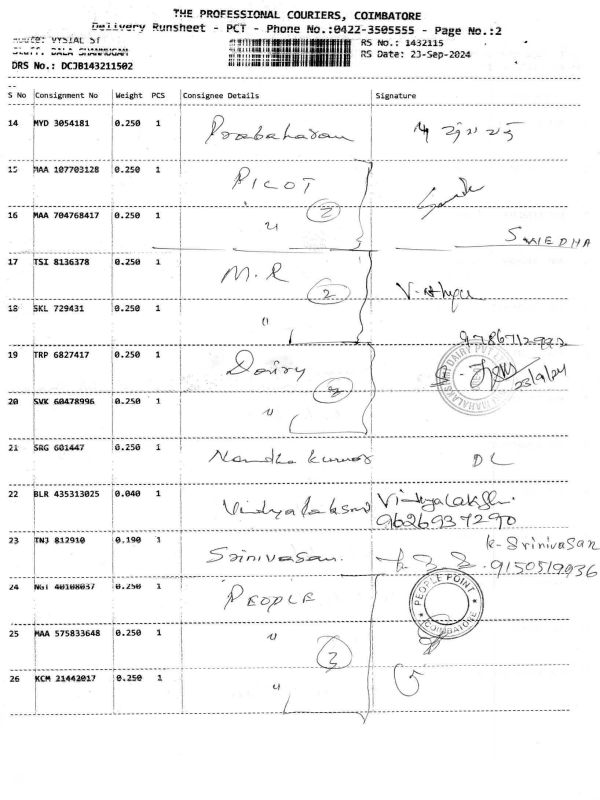 THE PROFESSIONAL COURIERS, COIMBATORE
Delivery Runsheet - PCT - Phone No.:0422-3505555 - Page No.:2
Route: VYSIAL ST RS No.: 1432115
Staff: BALA SHANMUGAM RS Date: 23-Sep-2024
DRS No.: DCJB143211502
S No Consignment No Weight PCS Consignee Details Signature
14 MYD 3054181 0.250 1 Prabaharan
15 MAA 107703128 0.250 1 PICOT
16 MAA 704768417 0.250 1 " 2 SWEDHA
17 TSI 8136378 0.250 1 M.R
18 SKL 729431 0.250 1 " 2
19 TRP 6827417 0.250 1 Dairy 23/9/24
20 SVK 60478996 0.250 1 "
21 SRG 601447 0.250 1 Nandha kumar DL
22 BLR 435313025 0.040 1 Vidhyalakshmi Vidhyalakshmi
9626937290
23 TNJ 812910 0.190 1 Srinivasan. K-Srinivasan
9150519936
24 NGT 40108037 0.250 1 PEOPLE PEOPLE POINT COIMBATORE
25 MAA 575833648 0.250 1 " 3
26 KCM 21442017 0.250 1 "